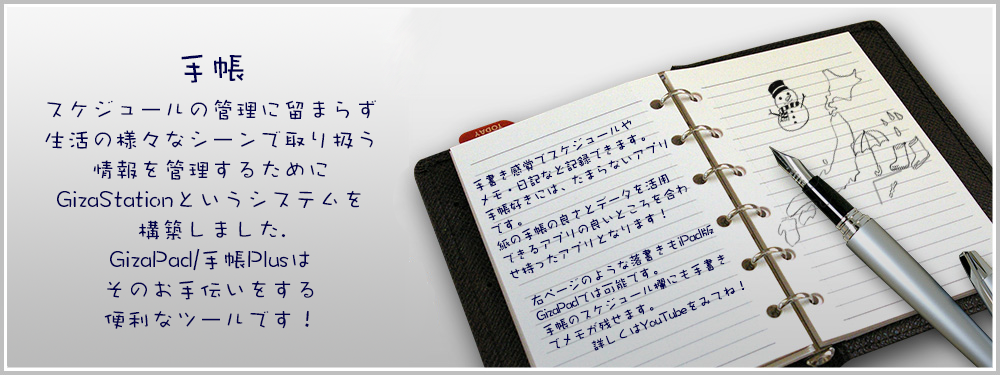 手帳
スケジュールの管理に留まらず
生活の様々なシーンで取り扱う
情報を管理するために
GizaStationというシステムを
構築しました.
GizaPad/手帳Plusは
そのお手伝いをする
便利なツールです！
TODAY
手書き感覚でスケジュールや
メモ・日記など記録できます。
手帳好きには、たまらないアプリ
です。
紙の手帳の良さとデータを活用
できるアプリの良いところを合わ
せ持ったアプリとなります！
右ページのような落書きもiPad版
GizaPadでは可能です。
手帳のスケジュール欄にも手書き
でメモが残せます。
詳しくはYouTubeをみてね！